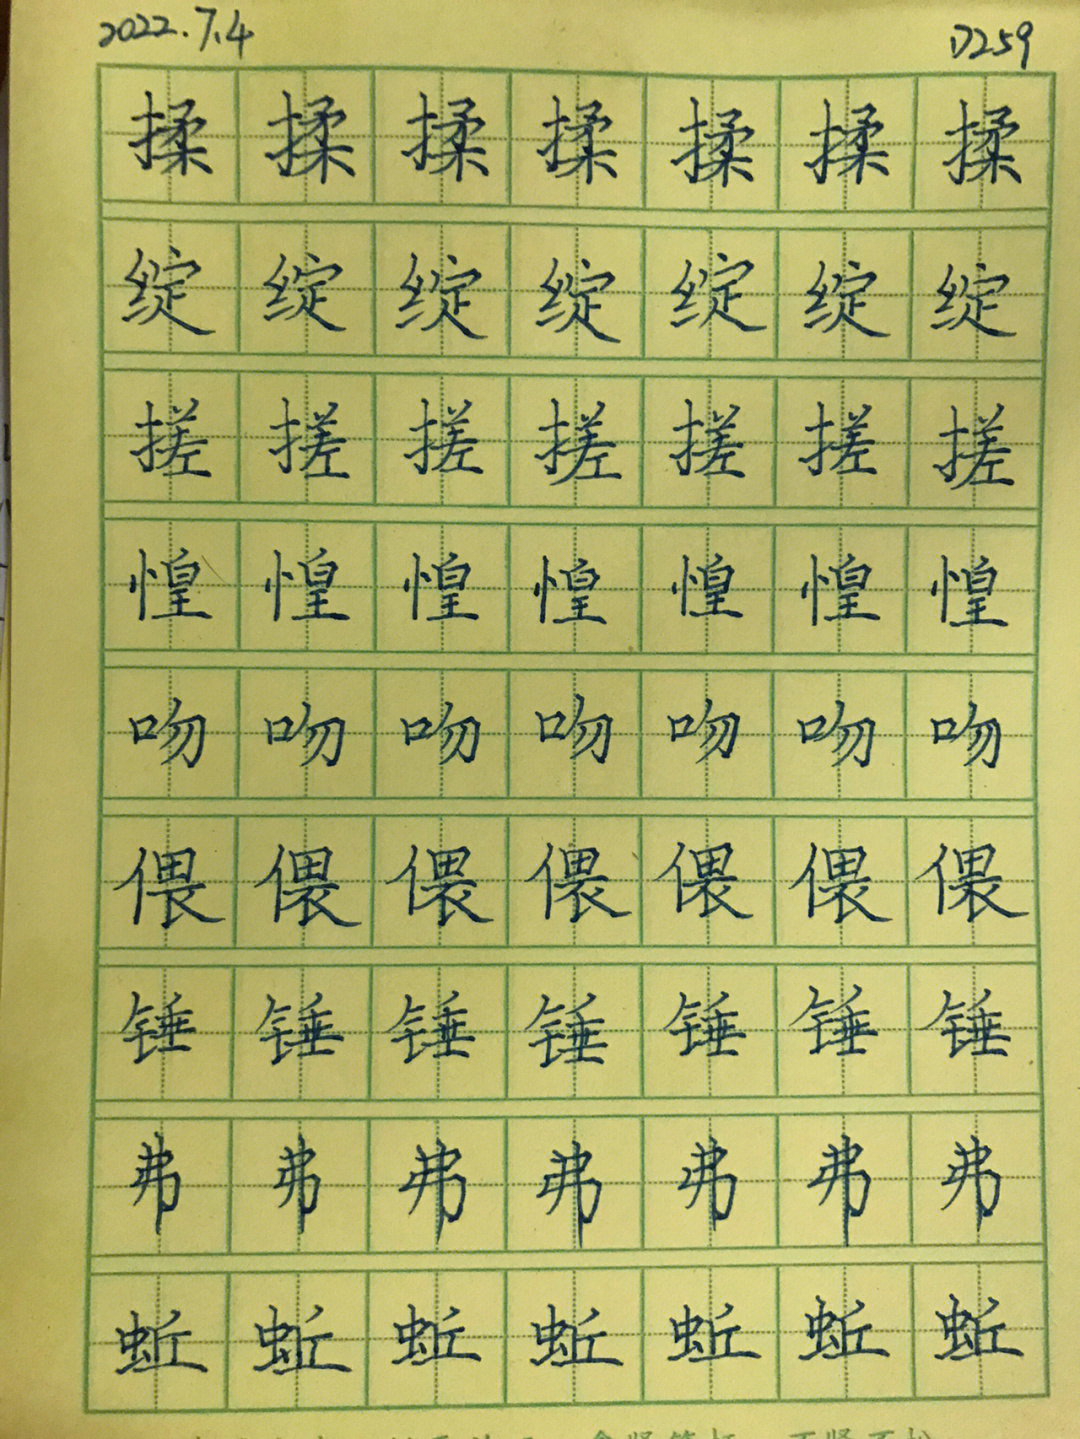 2022.7.4 D259
揉 揉 揉 揉 揉 揉 揉
绽 绽 绽 绽 绽 绽 绽
搓 搓 搓 搓 搓 搓 搓
惶 惶 惶 惶 惶 惶 惶
吻 吻 吻 吻 吻 吻 吻
偎 偎 偎 偎 偎 偎 偎
锤 锤 锤 锤 锤 锤 锤
弗 弗 弗 弗 弗 弗 弗
蚯 蚯 蚯 蚯 蚯 蚯 蚯